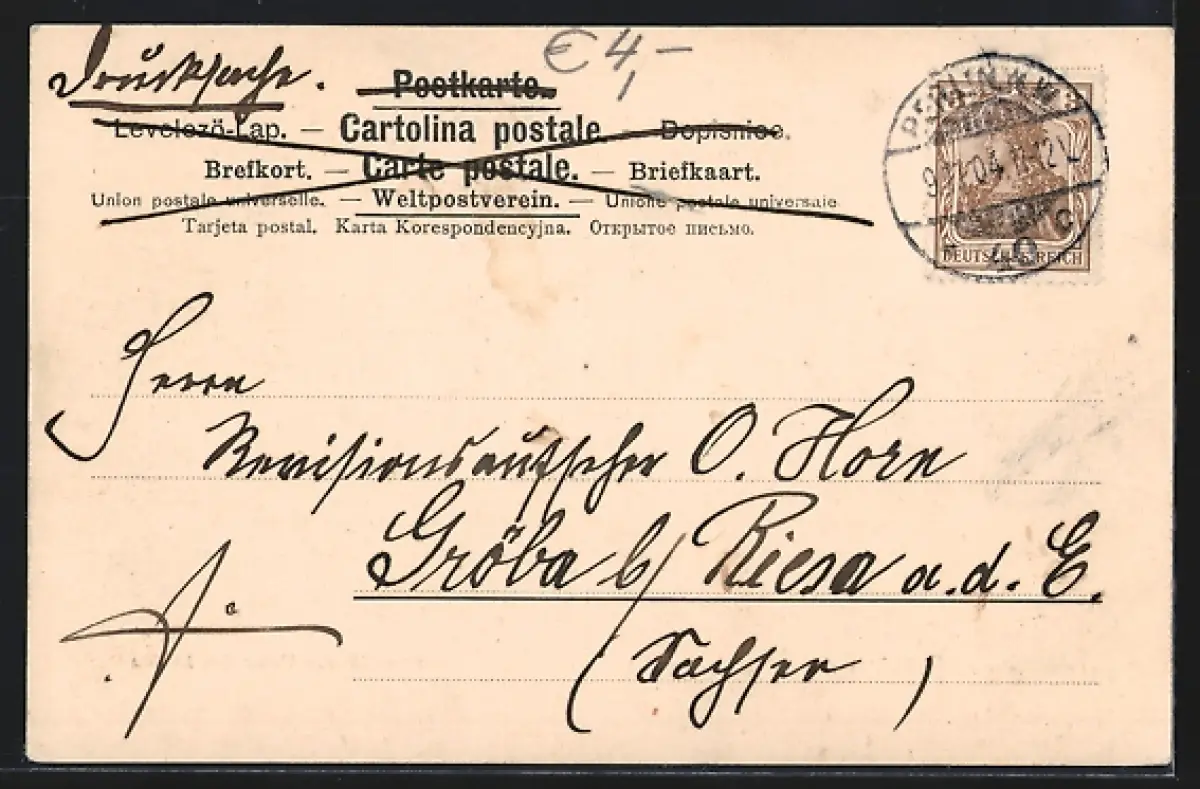 Drucksache.
€ 4,-
Postkarte.
Levelező-Lap. — Cartolina postale. — Dopisnice.
Brefkort. — Carte postale. — Briefkaart.
Union postale universelle. — Weltpostverein. — Unione postale universale
Tarjeta postal. Karta Korespondencyjna. Открытое письмо.
BERLIN N.W.
04. 11-12
40 c
DEUTSCHES REICH
Herrn
Revisionsaufseher O. Horn
Gröba b/ Riesa a. d. E.
(Sachsen)